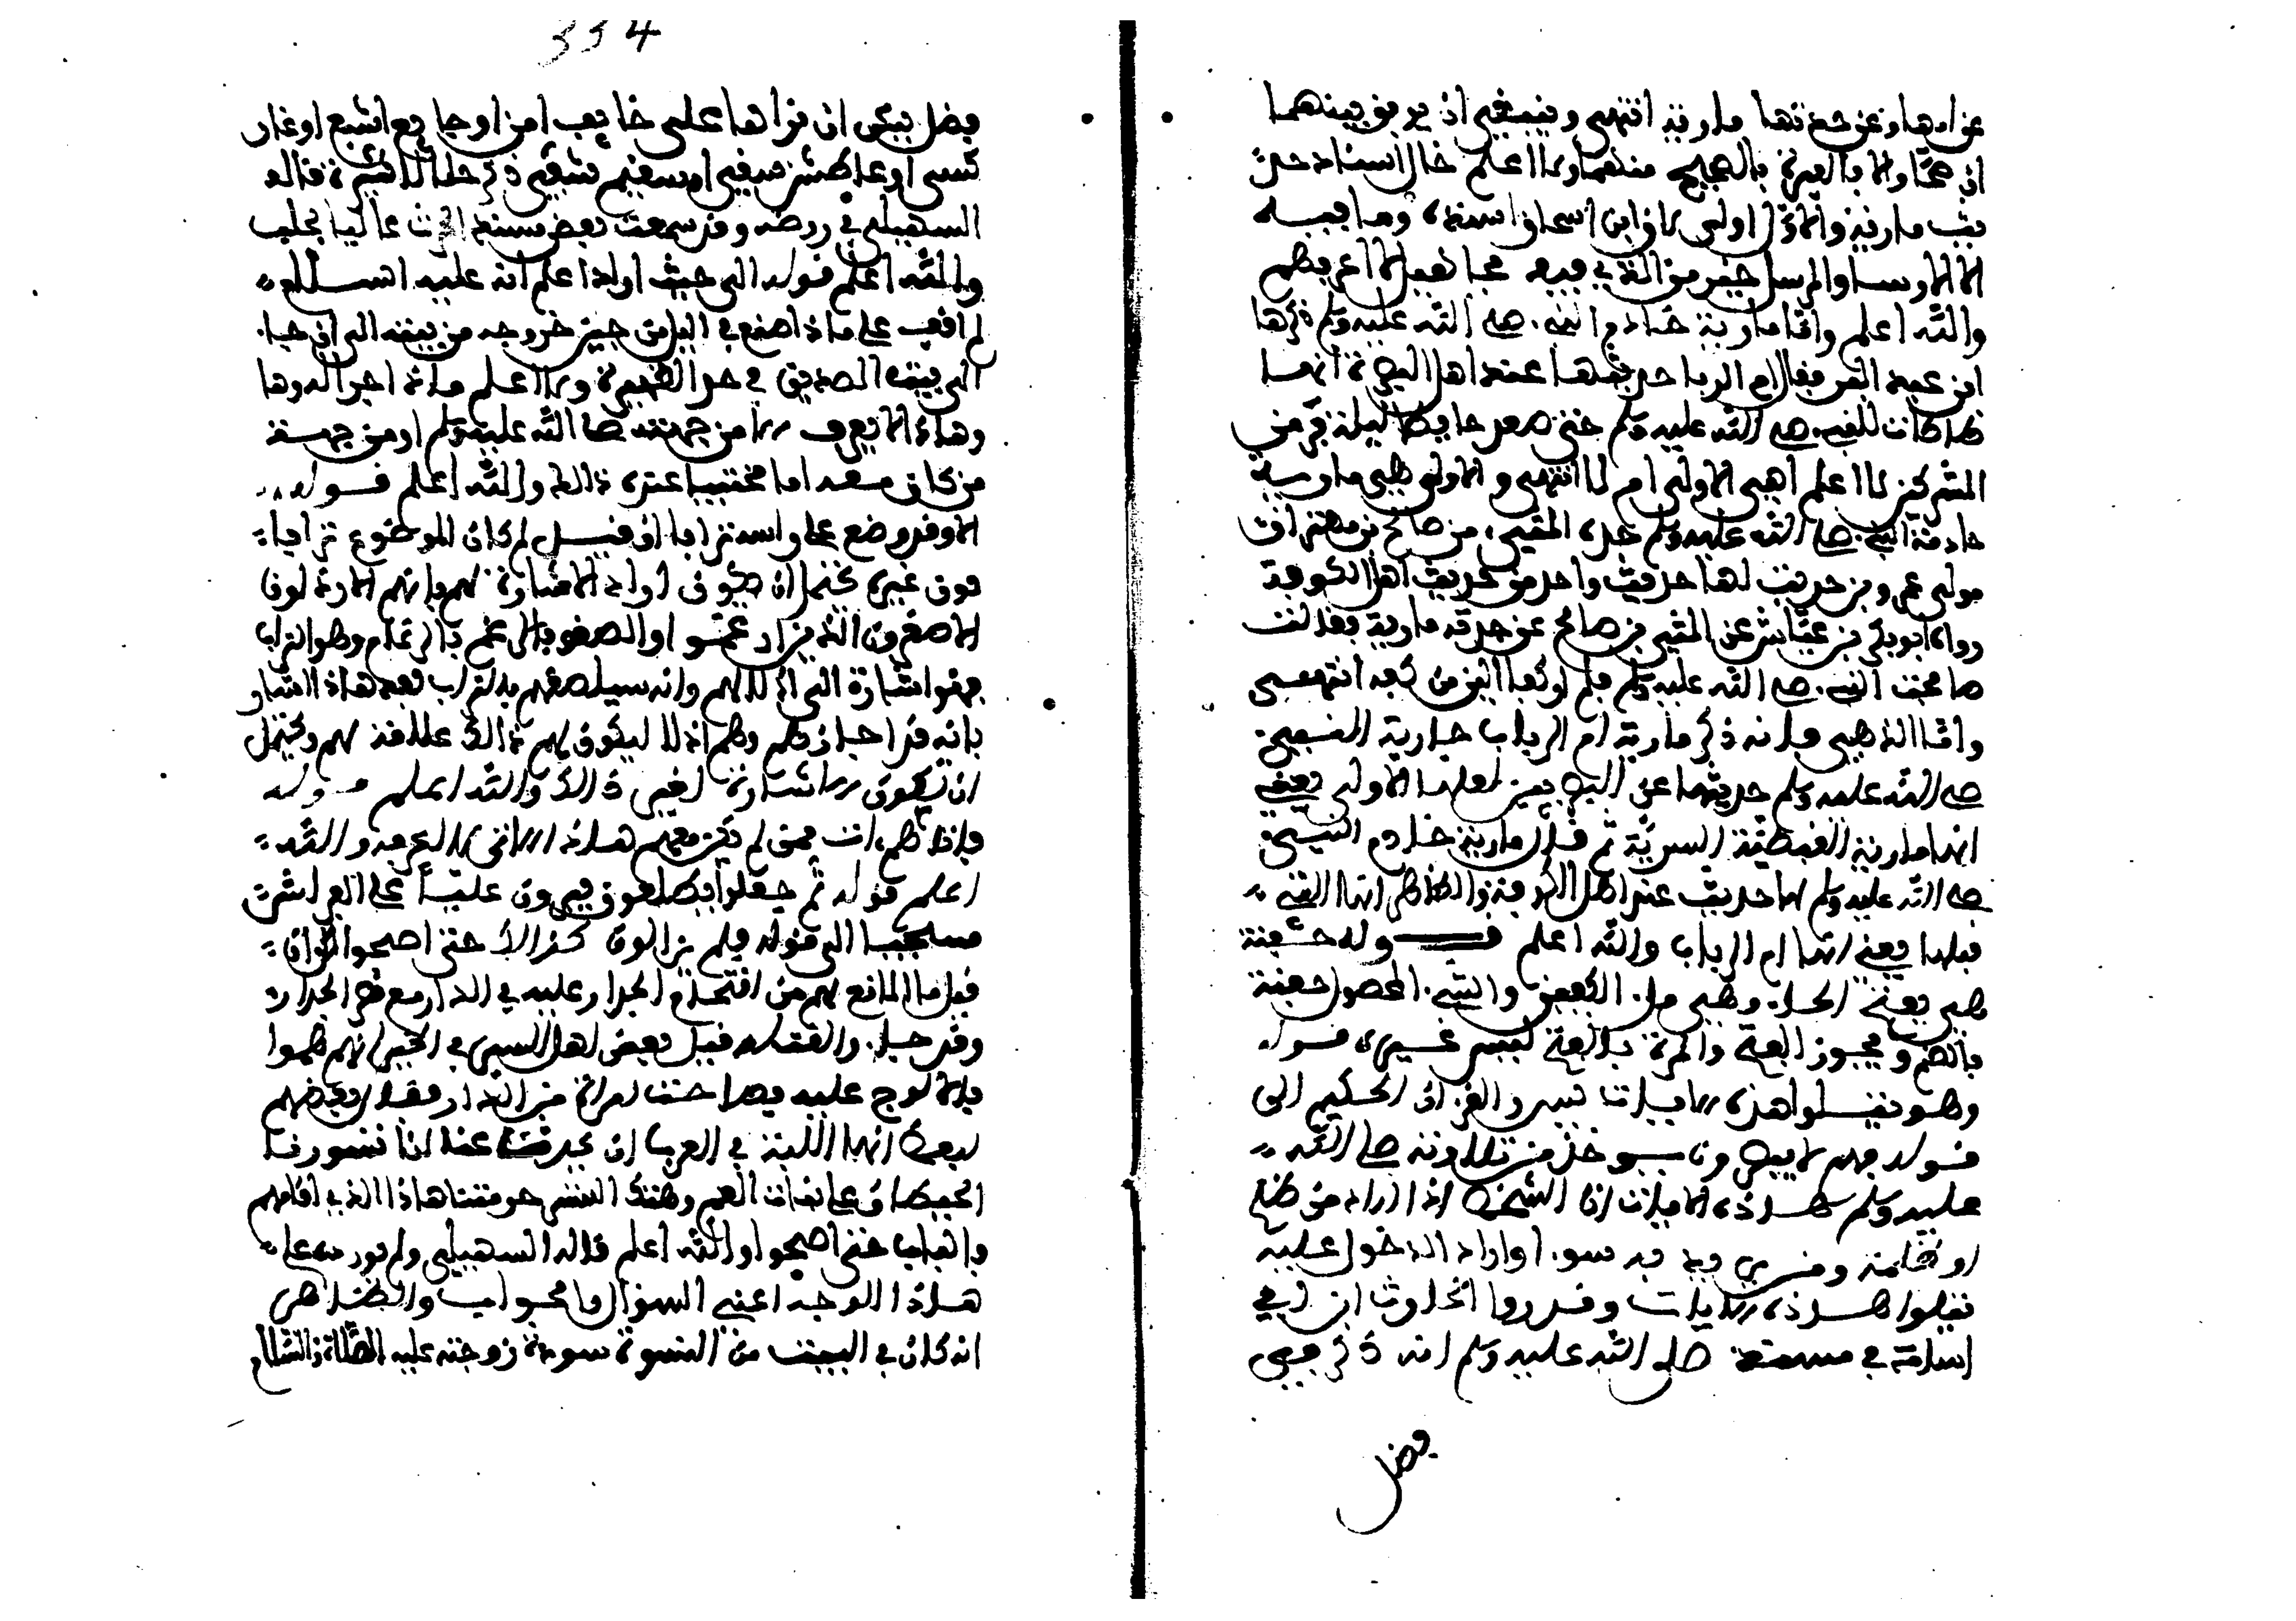 عن امها وعن جدتها مارية انتهى وينبغي ان يعرف بينهما
ان صحا والا فالعبرة بالصحيح منهما والله اعلم خال اسناد حديث
مارية والاول اولى لان ابن اسحاق اسنده وما فيه
الا الارسال والمرسل خير من الذي فيه مجاهيل لا اعرفهم
والله اعلم واما مارية خادم النبي صلى الله عليه وسلم ذكرها
ابن عبد البر فقال ام الرباب حديثها عند اهل البصرة انها
تطاطات للنبي صلى الله عليه وسلم حتى صعد حايطا ليلة فر من
المشركين لا اعلم اهي الاولى ام لا انتهى والاولى هي مارية
خادمة النبي صلى الله عليه وسلم جدة المثنى بن صالح بن مهران
مولى عمرو بن حريث لها حديث واحد من حديث اهل الكوفة
رواه ابو بكر بن عياش عن المثنى بن صالح عن جدته مارية قالت
صافحت النبي صلى الله عليه وسلم فلم ار كفا الين من كفه انتهى
واما الذهبي فانه ذكر مارية ام الرباب جارية النبي
صلى الله عليه وسلم حديثها عن البصريين لعلها الاولى يعني
انها مارية القبطية السرية ثم قال مارية خادم النبي
صلى الله عليه وسلم لها حديث عند اهل الكوفة والظاهر انها التي
قبلها يعني انها ام الرباب والله اعلم قوله حفنة
هي بفتح الحا وهي مل الكفين والشي المحصول حفنة
بالضم ويجوز الفتح والمرة بالفتح ليس غير قوله
وهو يتلوا هذه الايات يس والقران الحكيم الى
قوله فهم لا يبصرون يوخذ من تلاوته صلى الله
عليه وسلم هذه الايات ان الشخص اذا اراد من ظالم
او ظلمة ومن يريد به سو او اراد الدخول عليه
يتلوا هذه الايات وقد روا الحارث ابن ابي
اسامة في مسنده صلى الله عليه وسلم انه ذكر في
فضل
334
فضل يس ان قراها على خايف امن او جايع اشبع او عار
كسي او عاطش سقي او سقيم شفي ذكر خلالا كثيرة قاله
السهيلي في روضه وقد سمعت بعض مسند الحرث عاليا بحلب
والله اعلم قوله الى حيث اراد اعلم انه عليه السلام
لم اقف على ماذا صنع في الزمن حين خروجه من بيته الى ان جا
الى بيت الصديق في حر الظهيرة والله اعلم ماذا جرا له وها
وهاذا لا يعرف الا من جهته صلى الله عليه وسلم او من جهة
من كان معه اما مختبيا عنده ذالك والله اعلم قوله
الا وقد وضع على راسه ترابا ان قيل لم كان الموضوع ترابا
دون غيره يحتمل ان يكون اراد الاشارة لهم بانهم الارذلون
الاصغرون الذين ارغموا والصقوا بالرغم بالرغام وهو التراب
فهو اشارة الى اذلالهم وانه سيلصقهم بالتراب بعد هاذا او اشار
بانه قد اخذ وهم وهم اذلا ليكون لهم ذالك علامة لهم ويحتمل
ان تكون الاشارة لغير ذالك والله اعلم قوله
فاتاهم ات ممن لم يكن معهم هاذا الاتي لا اعرفه والله
اعلم قوله ثم جعلوا يطلعون فيرون عليا على الفراش
مسجيا الى قوله فلم يزالون كذالك حتى اصبحوا ان
قيل ما المانع لهم من اقتحام الجدار عليه في الدار مع قصر الجدار
وقد جاوا لقتله قيل بعض اهل السير في الخبر انهم هموا
بالولوج عليه فصاحت امراة من الدار فقال بعضهم
لبعض انها للسبة في العرب ان يتحدث عنا انا تسورنا
الحيطان على بنات العم وهتك الستر حرمتنا هاذا الذي اقامهم
بالباب حتى اصبحوا والله اعلم قاله السهيلي ولم يورده على
هاذا الوجه اعني السوال والجواب والظاهر
انه كان في البيت من النسوة سودة زوجته عليه الصلاة والسلام